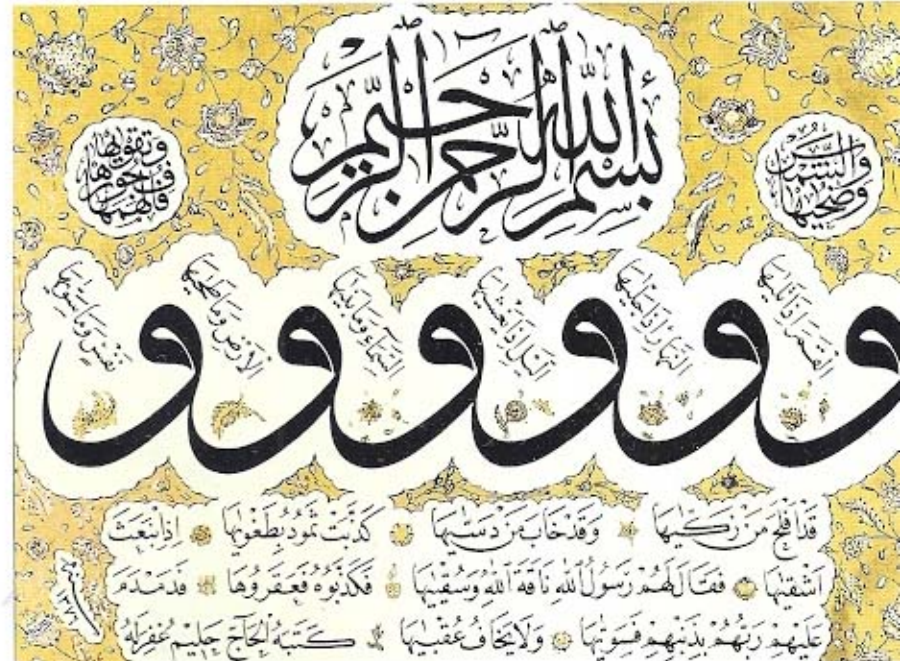 بسم الله الرحمن الرحيم
والشمس وضحيها
القمر اذا تليها
النهار اذا جليها
اليل اذا يغشيها
السماء وما بنيها
الأرض وما طحيها
نفس وما سويها
و و و و و و
فالهمها فجورها وتقويها
قد افلح من زكيها وقد خاب من دسيها كذبت ثمود بطغويها اذ انبعث
اشقيها فقال لهم رسول الله ناقة الله وسقيها فكذبوه فعقروها فدمدم
عليهم ربهم بذنبهم فسويها ولا يخاف عقبيها كتبه الحاج حليم غفرله